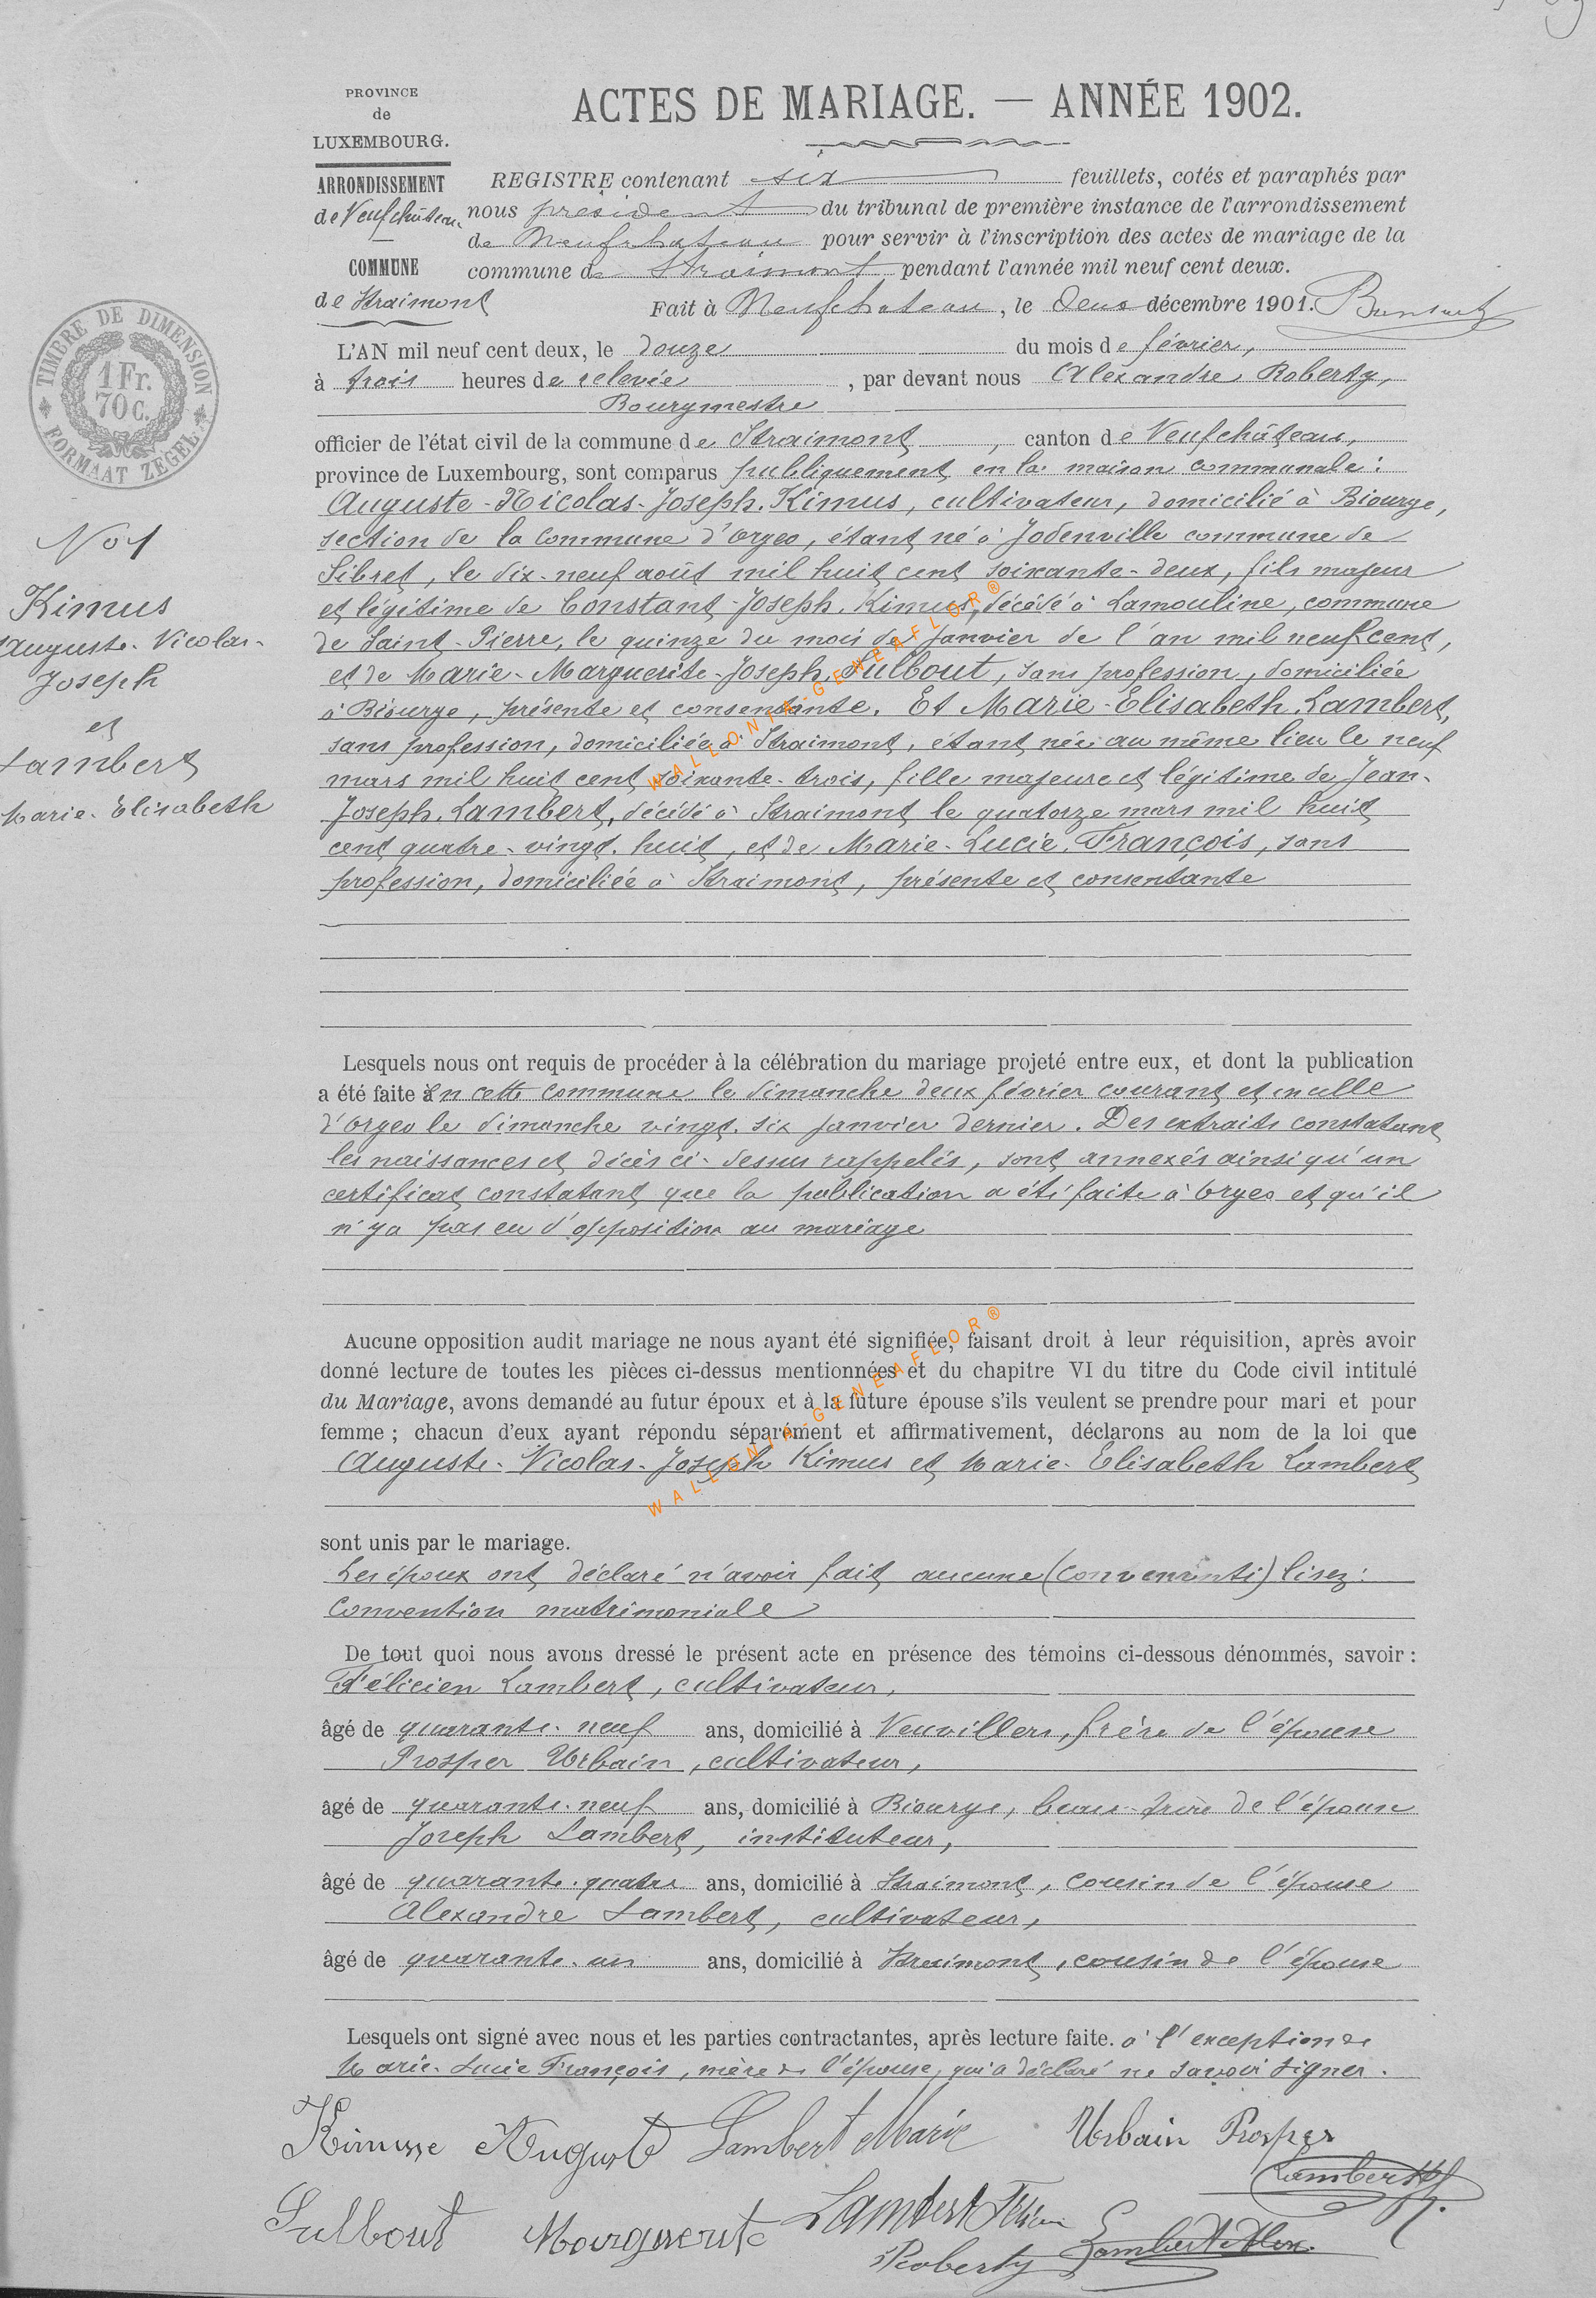 PROVINCE
de
LUXEMBOURG.
ARRONDISSEMENT
de Neufchâteau.
COMMUNE
de Straimont
ACTES DE MARIAGE. — ANNÉE 1902.
REGISTRE contenant six feuillets, cotés et paraphés par
nous président du tribunal de première instance de l'arrondissement
de Neufchateau pour servir à l'inscription des actes de mariage de la
commune de Straimont pendant l'année mil neuf cent deux.
Fait à Neufchateau, le deux décembre 1901.
TIMBRE DE DIMENSION
1 Fr.
70 c.
FORMAAT ZEGEL
L'AN mil neuf cent deux, le douze du mois de février,
à trois heures de relevée, par devant nous Alexandre Roberty,
Bourgmestre
officier de l'état civil de la commune de Straimont, canton de Neufchâteau,
province de Luxembourg, sont comparus publiquement en la maison communale :
Auguste-Nicolas-Joseph. Kimus, cultivateur, domicilié à Biourge,
section de la commune d'Orgeo, étant né à Jodenville commune de
Sibret, le dix-neuf août mil huit cent soixante-deux, fils majeur
et légitime de Constant-Joseph. Kimus, décédé à Lamouline, commune
de Saint-Pierre, le quinze du mois de janvier de l'an mil neuf cent,
et de Marie-Marguerite-Joseph. Sulbout, sans profession, domiciliée
à Biourge, présente et consentante. Et Marie-Elisabeth. Lambert,
sans profession, domiciliée à Straimont, étant née au même lieu le neuf
mars mil huit cent soixante-trois, fille majeure et légitime de Jean-
Joseph. Lambert, décédé à Straimont le quatorze mars mil huit
cent quatre-vingt-huit, et de Marie-Lucie. François, sans
profession, domiciliée à Straimont, présente et consentante
No 1
Kimus
Auguste-Nicolas-
Joseph
et
Lambert
Marie-Elisabeth
Lesquels nous ont requis de procéder à la célébration du mariage projeté entre eux, et dont la publication
a été faite en cette commune le dimanche deux février courant et en celle
d'Orgeo le dimanche vingt-six janvier dernier. Des extraits constatant
les naissances et décès ci-dessus rappelés, sont annexés ainsi qu'un
certificat constatant que la publication a été faite à Orgeo et qu'il
n'y a pas eu d'opposition au mariage
Aucune opposition audit mariage ne nous ayant été signifiée, faisant droit à leur réquisition, après avoir
donné lecture de toutes les pièces ci-dessus mentionnées et du chapitre VI du titre du Code civil intitulé
du Mariage, avons demandé au futur époux et à la future épouse s'ils veulent se prendre pour mari et pour
femme ; chacun d'eux ayant répondu séparément et affirmativement, déclarons au nom de la loi que
Auguste-Nicolas-Joseph Kimus et Marie-Elisabeth Lambert
sont unis par le mariage.
Les époux ont déclaré n'avoir fait aucune ( ) lisez :
convention matrimoniale
De tout quoi nous avons dressé le présent acte en présence des témoins ci-dessous dénommés, savoir :
Félicien Lambert, cultivateur,
âgé de quarante-neuf ans, domicilié à Neuvillers, frère de l'épouse
Prosper Urbain, cultivateur,
âgé de quarante-neuf ans, domicilié à Biourge, beau-frère de l'épouse
Joseph Lambert, instituteur,
âgé de quarante-quatre ans, domicilié à Straimont, cousin de l'épouse
Alexandre Lambert, cultivateur,
âgé de quarante-un ans, domicilié à Straimont, cousin de l'épouse
Lesquels ont signé avec nous et les parties contractantes, après lecture faite. à l'exception de
Marie-Lucie François, mère de l'épouse, qui a déclaré ne savoir signer.
Kimusse Auguste Lambert Marie Urbain Prosper
Lambert
Sulbout Marguerite Lambert Félicien
Roberty Lambert Alex.
WALLONIA-GENEAFLOR®
WALLONIA-GENEAFLOR®